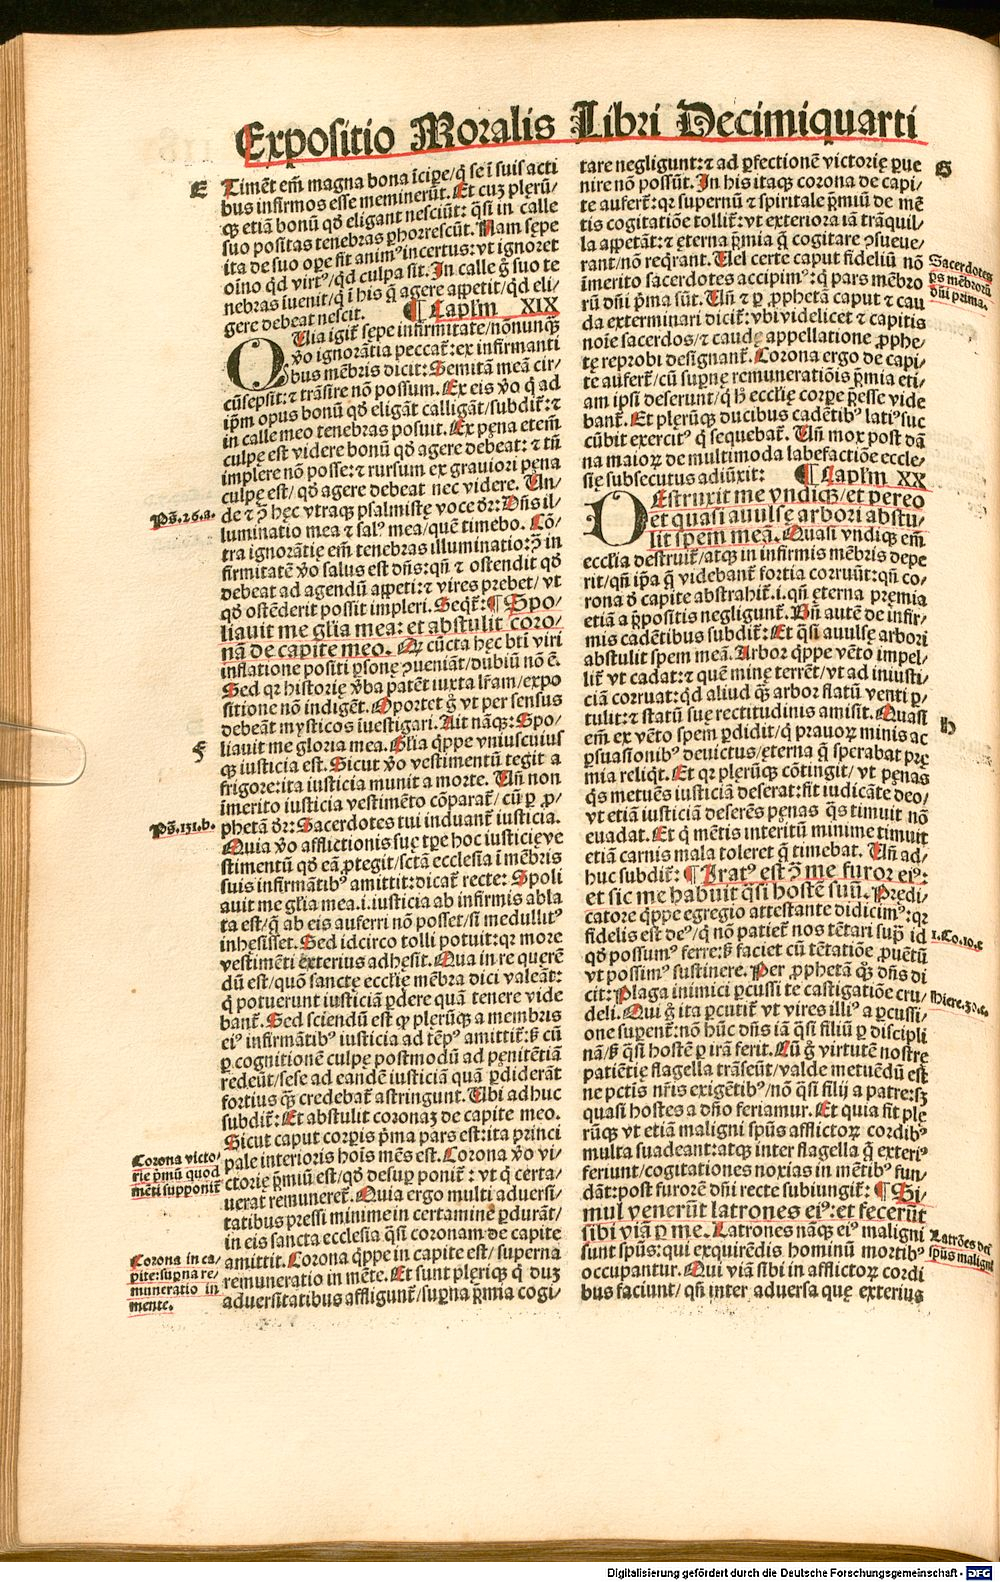 Expositio Moralis Libri Decimiquarti
E
Timẽt em̃ magna bona īcipe/ q̃ se ĩ suis acti
bus infirmos esse meminerũt. Et cuz plerũ/
q̧ etiã bonũ qđ eligant nesciũt: q̃si in calle
suo positas tenebras ꝑhorrescũt. Nam sępe
ita de suo oꝑe fit animꝰ incertus: vt ignoret
oĩno qđ virtꝰ/ qđ culpa sit. In calle g̊ suo te
nebras iuenit/ q̃ ĩ his q̃ agere appetit/ qđ eli/
gere debeat nescit. ¶ Capl'm XIX
QUia igit̃ sępe infirmitate/ nõnunq̃
ṽo ignorãtia peccat̃: ex infirmanti
bus mẽbris dicit: Semitã meã cir/
cũsepsit: ⁊ trãsire nõ possum. Ex eis ṽo q̃ ad
ip̃m opus bonũ qđ eligãt calligãt/ subdit̃: ⁊
in calle meo tenebras posuit. Ex pęna etem̃
culpę est videre bonũ qđ agere debeat: ⁊ tñ
implere nõ posse: ⁊ rursum ex grauiori pęna
culpę est/ qđ agere debeat nec videre. Un/
de ⁊ ꝯ̃ hęc vtraq̧ psalmistę voce đr: Dñs il/
Ps̃.26.a.
luminatio mea ⁊ salꝰ mea/ quẽ timebo. Cõ/
tra ignorãtię em̃ tenebras illuminatio: ꝯ̃ in
firmitatẽ ṽo salus est dñs: qñ ⁊ ostendit qđ
debeat ad agendũ appeti: ⁊ vires prebet/ vt
qđ ostẽderit possit impleri. Seqt̃: ¶ Spo/
liauit me gl̃ia mea: et abstulit coro/
nã de capite meo. Qꝛ cũcta hęc bt̃i viri
inflatione positi ꝑsonę ꝯueniãt/ dubiũ nõ ẽ.
Sed qꝛ historię ṽba patẽt iuxta l'ram/ expo
sitione nõ indigẽt. Oportet g̊ vt per sensus
debeãt mysticos ĩuestigari. Ait nãq̧: Spo/
F
liauit me gloria mea. Gl̃ia q̃ppe vniuscuius
q̧ iusticia est. Sicut ṽo vestimentũ tegit a
frigore: ita iusticia munit a morte. Uñ non
ĩmerito iusticia vestimẽto cõparat̃/ cũ ꝑ ꝓ/
Ps̃.131.b.
phetã đr: Sacerdotes tui induant̃ iusticia.
Quia ṽo afflictionis suę tp̃e hoc iusticię ve
stimentũ qđ eã ꝓtegit/ sctã ecclesĩa ĩ mẽbris
suis infirmãtibꝰ amittit: dicat̃ recte: Spoli
auit me gl̃ia mea. i. iusticia ab infirmis abla
ta est/ q̃ ab eis auferri nõ posset/ si medullitꝰ
inhesisset. Sed idcirco tolli potuit: qꝛ more
vestimẽti exterius adhesit. Qua in re querẽ
dũ est/ quõ sanctę ecclię mẽbra dici valeãt:
q̃ potuerunt iusticiã ꝑdere quã tenere vide
bant̃. Sed sciendũ est qꝙ plerũq̧ a membris
eiꝰ infirmãtibꝰ iusticia ad tẽpꝰ amittit̃: ß cũ
ꝑ cognitionẽ culpę postmodũ ad pęnitẽtiã
redeũt/ sese ad eandẽ iusticiã quã ꝑdiderãt
fortius q̃ credebat̃ astringunt. Ubi adhuc
subdit̃: Et abstulit coronaʒ de capite meo.
Sicut caput corꝑis p̃ma pars est: ita princi
Corona victo/
rię p̃mũ quod
mẽti supponit̃
pale interioris hoĩs mẽs est. Corona ṽo vi/
ctorię p̃miũ est/ qđ desuꝑ ponit̃: vt q̃ certa/
uerat remuneret̃. Quia ergo multi aduersi/
tatibus pressi minime in certamine ꝑdurãt/
in eis sancta ecclesĩa q̃si coronam de capite
amittit. Corona q̃ppe in capite est/ superna
Corona in ca/
pite: suꝑna re/
muneratio in
mente.
remuneratio in mẽte. Et sunt plęriq̧ q̃ duʒ
aduersitatibus affligunt̃/ suꝑna p̃mia cogi/
tare negligunt: ⁊ ad ꝑfectionẽ victorię ꝑue
G
nire nõ possũt. In his itaq̧ corona de capi/
te aufert̃: qꝛ supernũ ⁊ spiritale p̃miũ de mẽ
tis cogitatiõe tollit̃: vt exteriora iã trãquil/
la appetãt: ⁊ ęterna p̃mia q̃ cogitare ꝯsueue/
rant/ nõ reqrant. Uel certe caput fideliũ nõ
Sacerdotes
ps mẽbrorũ
dñi prima.
ĩmerito sacerdotes accipimꝰ: q̃ pars mẽbro
rũ dñi p̃ma sũt. Uñ ⁊ ꝑ ꝓphetã caput ⁊ cau
da exterminari dicit̃: vbi videlicet ⁊ capitis
noĩe sacerdos/ ⁊ caudę appellatione ꝓphe/
tę reprobi designant̃. Corona ergo de capi/
te aufert̃/ cũ suꝑnę remuneratiõis p̃mia eti/
am ipsi deserunt/ q̃ ħ ecclię corꝑe p̃esse vide
bant̃. Et plerũq̧ ducibus cadẽtibꝰ latiꝰ suc
cũbit exercitꝰ q̃ sequebat̃. Uñ mox post dã
na maioꝝ de multimoda labefactiõe eccle/
się subsecutus adiũxit: ¶ Capl'm XX
DEstruxit me vndiq̧/ et pereo
et quasi auulsę arbori abstu/
lit spem meã. Quasi vndiq̧ em̃
ecclĩa destruit̃/ atq̧ in infirmis mẽbris depe
rit/ qñ ip̃a q̃ videbant̃ fortia corruũt: qñ co/
rona đ capite abstrahit̃. i. qñ ęterna pręmia
etiã a p̃positis negligunt̃. Bñ autẽ de infir/
mis cadẽtibus subdit̃: Et q̃si auulsę arbori
abstulit spem meã. Arbor q̃ppe vẽto impel/
lit̃ vt cadat: ⁊ quẽ minę terrẽt/ vt ad iniusti/
ciã corruat: qd aliud q̃ arbor flatũ venti ꝑ/
tulit: ⁊ statũ suę rectitudinis amisit. Quasi
H
em̃ ex vẽto spem ꝑdidit/ q̃ prauoꝝ minis ac
ꝑsuasionibꝰ deuictus/ ęterna q̃ sperabat prę
mia reliqt. Et qꝛ plerũq̧ cõtingit/ vt pęnas
q̃s metuẽs iusticiã deserat: fit iudicãte deo/
vt etiã iusticiã deserẽs pęnas q̃s timuit nõ
euadat. Et q̃ mẽtis interitũ minime timuit
etiã carnis mala toleret q̃ timebat. Uñ ad/
huc subdit̃: ¶ Iratꝰ est ꝯ̃ me furor eiꝰ:
et sic me habuit q̃si hostẽ suũ. Prędi/
catore q̃ppe egregio attestante didicimꝰ: qꝛ
fidelis est deꝰ/ q̃ nõ patiet̃ nos tẽtari suꝑ id
1.Co.10.c
qđ possumꝰ ferre: ß faciet cũ tẽtatiõe ꝓuẽtũ
vt possimꝰ sustinere. Per ꝓphetã q̧ dñs di
cit: Plaga inimici ꝑcussi te castigatiõe cru/
Hiere.30.c.
deli. Qui g̊ ita ꝑcutit̃ vt vires illiꝰ a ꝑcussi/
one suꝑent̃: nõ hũc dñs iã q̃si filiũ ꝑ discipli
nã/ ß q̃si hostẽ ꝑ irã ferit. Cũ g̊ virtutẽ nostrę
patiẽtię flagella trãseũt/ valde metuẽdũ est
ne pctĩs nr̃is exigẽtibꝰ/ nõ q̃si filij a patre: sʒ
quasi hostes a dño feriamur. Et quia fit ple
rũq̧ vt etiã maligni sp̃us afflictoꝝ cordibꝰ
multa suadeant: atq̧ inter flagella q̃ exteriꝰ
feriunt/ cogitationes noxias in mẽtibꝰ fun/
dãt: post furorẽ dñi recte subiungit̃: ¶ Si/
mul venerũt latrones eiꝰ: et fecerũt
sibi viã ꝑ me. Latrones nãq̧ eiꝰ maligni
Latrões dei
sp̃us maligni
sunt sp̃us: qui exquirẽdis hominũ mortibꝰ
occupantur. Qui viã sibi in afflictoꝝ cordi
bus faciunt/ qñ inter aduersa quę exterius
Digitalisierung gefördert durch die Deutsche Forschungsgemeinschaft - DFG